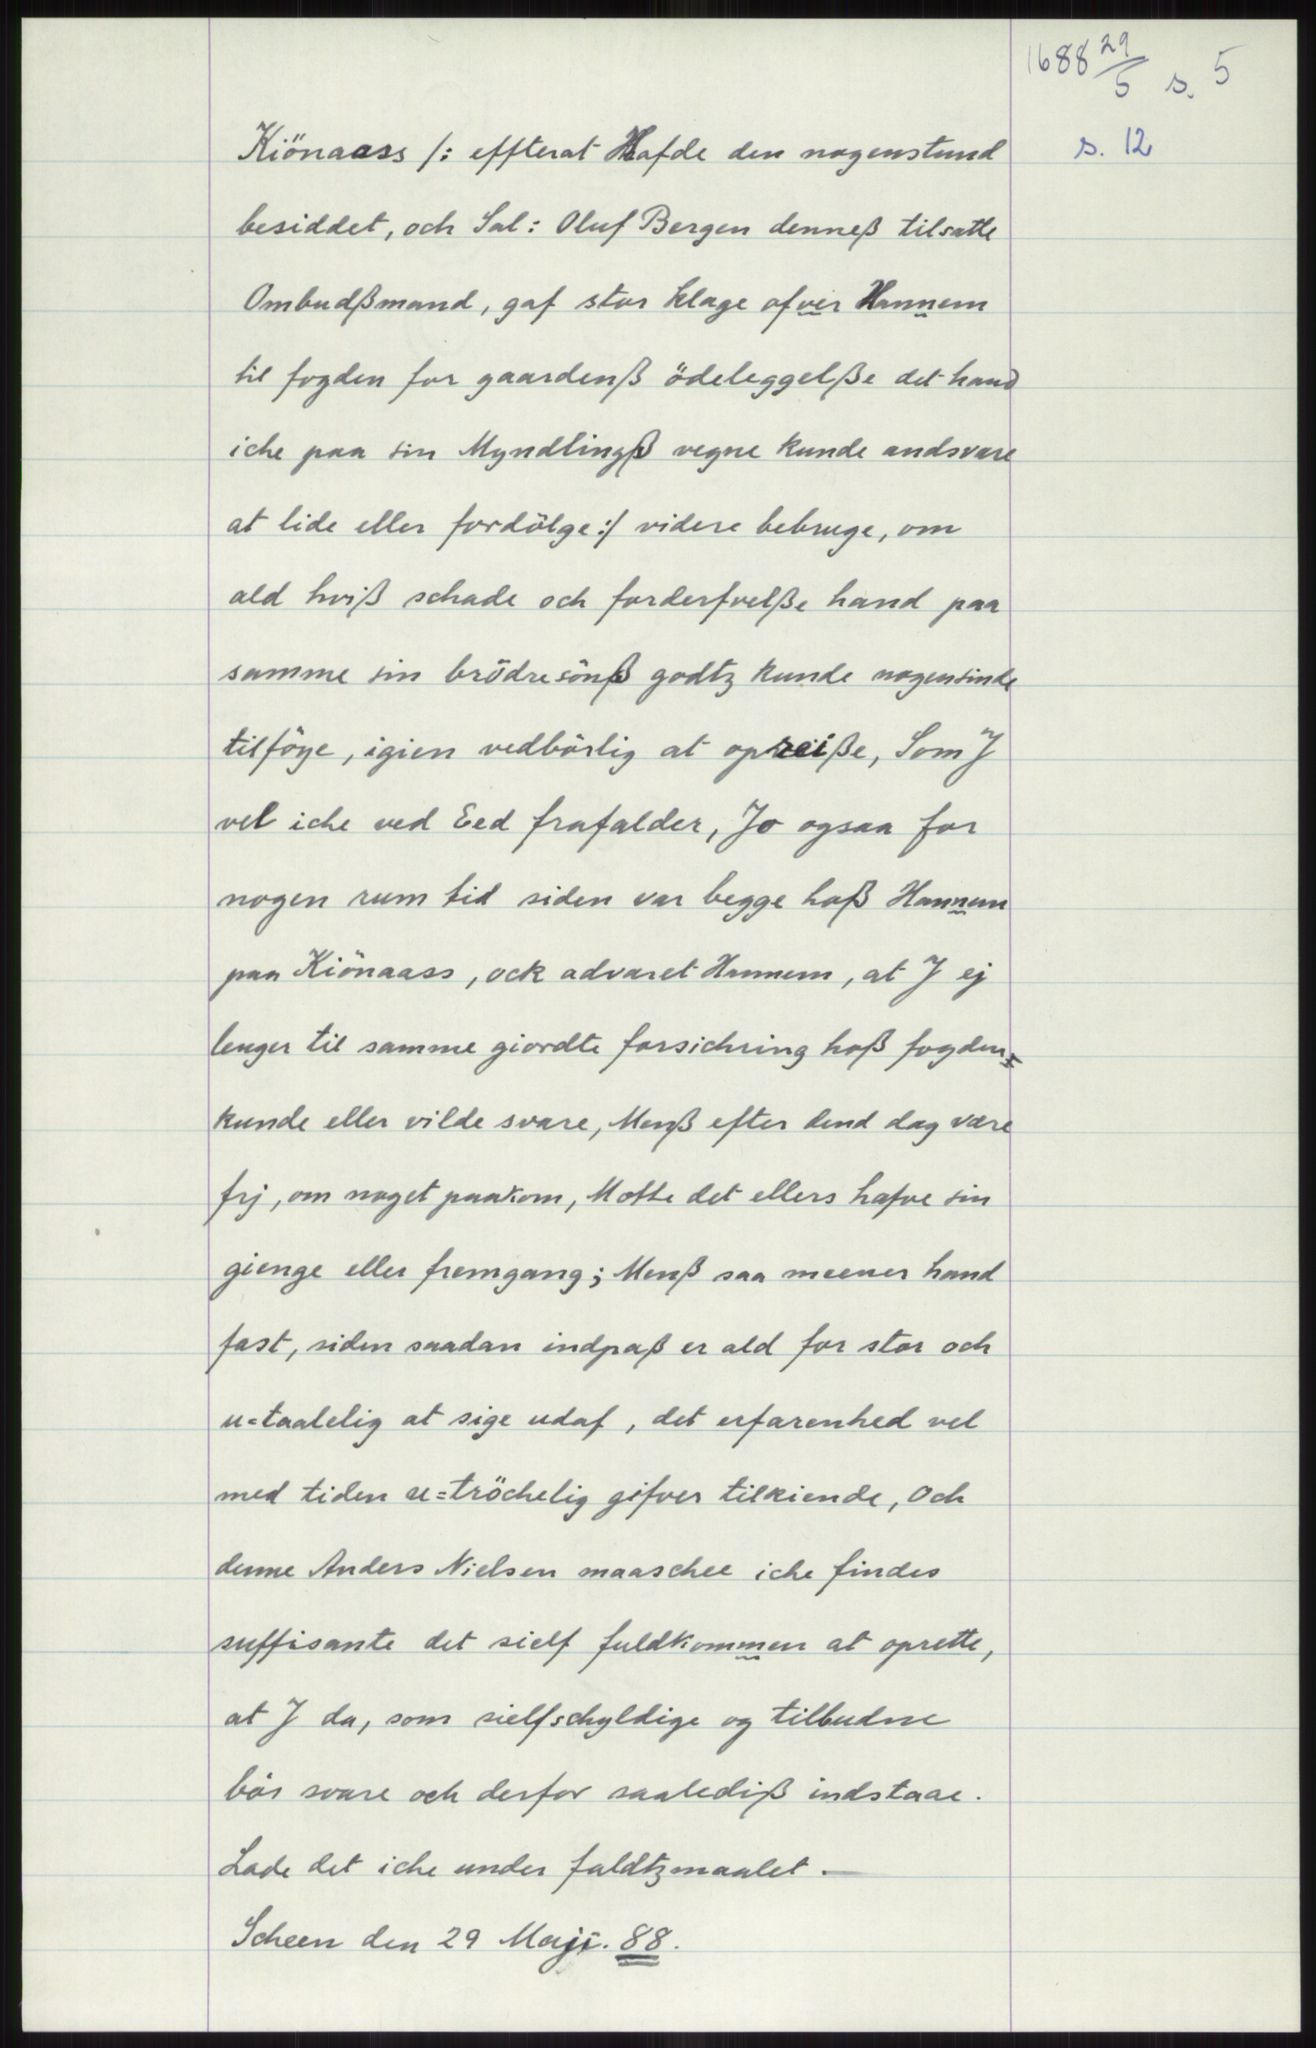 1688 29/5 s. 5
s. 12
Kiönaass /: effterat Hafde den nogenstund
besiddet, och Sal: Oluf Bergen denneß tilsatte
Ombudßmand, gaf stor klage ofver Hannem
til fogden for gaardenß ödeleggelße det hand
iche paa sin Myndlingß vegne kunde andsvare
at lide eller fordölge :/ videre bebruge, om
ald hviß schade och forderfvelße hand paa
samme sin brödresönß godtz kunde nogensinde
tilföye, igien vedbörlig at opreiße, Som J
vel iche ved Eed frafalder, Jo ogsaa for
nogen rum tid siden var begge hoß Hannem
paa Kiönaass, ock advaret Hannem, at J ej
lenger til samme giordte forsichring hoß fogden
kunde eller vilde svare, Menß efter dend dag være
frj, om noget paakom, Motte det ellers hafve sin
gienge eller fremgang; Menß saa meener hand
fast, siden saadan indpaß er ald for stor och
u=taalelig at sige udaf, det erfarenhed vel
med tiden u=tröchelig gifver tilkiende, Och
denne Anders Nielsen maaschee iche findes
suffisante det sielf fuldkommen at oprette,
at J da, som sielfschyldige og tilbudne
bör svare och derfor saalediß indstaae.
Lade det iche under faldtzmaalet. —
Scheen den 29 Maji. 88.